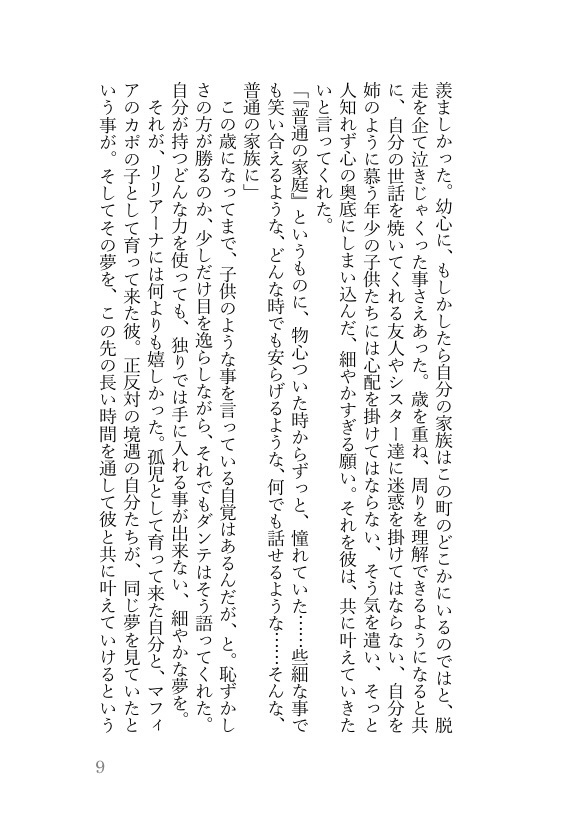 羨ましかった。幼心に、もしかしたら自分の家族はこの町のどこかにいるのではと、脱
走を企て泣きじゃくった事さえあった。歳を重ね、周りを理解できるようになると共
に、自分の世話を焼いてくれる友人やシスター達に迷惑を掛けてはならない、自分を
姉のように慕う年少の子供たちには心配を掛けてはならない、そう気を遣い、そっと
人知れず心の奥底にしまい込んだ、細やかすぎる願い。それを彼は、共に叶えていきた
いと言ってくれた。
「『普通の家庭』というものに、物心ついた時からずっと、憧れていた……些細な事で
も笑い合えるような、どんな時でも安らげるような、何でも話せるような……そんな、
普通の家族に」
この歳になってまで、子供のような事を言っている自覚はあるんだが、と。恥ずかし
さの方が勝るのか、少しだけ目を逸らしながら、それでもダンテはそう語ってくれた。
自分が持つどんな力を使っても、独りでは手に入れる事が出来ない、細やかな夢を。
それが、リリアーナには何よりも嬉しかった。孤児として育って来た自分と、マフィ
アのカポの子として育って来た彼。正反対の境遇の自分たちが、同じ夢を見ていたと
いう事が。そしてその夢を、この先の長い時間を通して彼と共に叶えていけるという
9